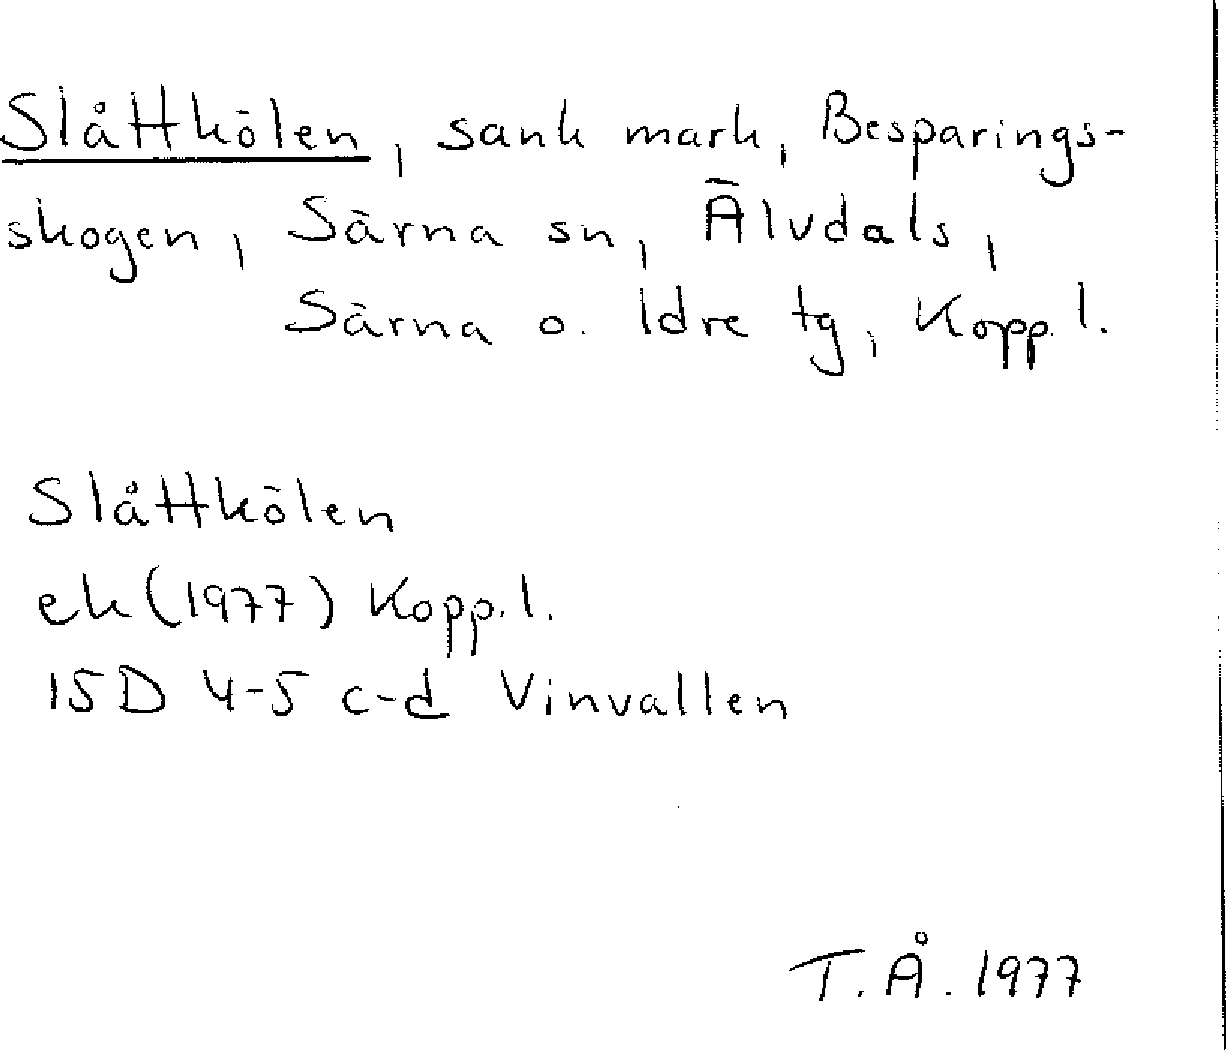 Slåttkölen, sank mark, Besparings-
skogen, Särna sn, Älvdals,
Särna o. Idre tg, Kopp. l.
Slåttkölen
ek (1977) Kopp. l.
15D 4-5 c-d Vinvallen
T. Å. 1977